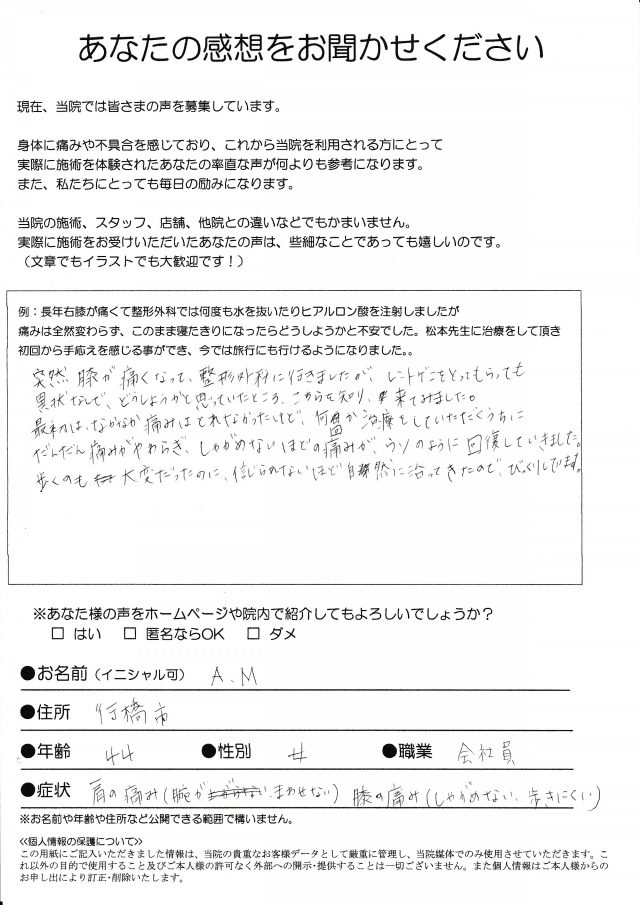 あなたの感想をお聞かせください
現在、当院では皆さまの声を募集しています。
身体に痛みや不具合を感じており、これから当院を利用される方にとって
実際に施術を体験されたあなたの率直な声が何よりも参考になります。
また、私たちにとっても毎日の励みになります。
当院の施術、スタッフ、店舗、他院との違いなどでもかまいません。
実際に施術をお受けいただいたあなたの声は、些細なことであっても嬉しいのです。
（文章でもイラストでも大歓迎です！）
例：長年右膝が痛くて整形外科では何度も水を抜いたりヒアルロン酸を注射しましたが
痛みは全然変わらず、このまま寝たきりになったらどうしようかと不安でした。松本先生に治療をして頂き
初回から手応えを感じる事ができ、今では旅行にも行けるようになりました。。
突然膝が痛くなって、整形外科に行きましたが、レントゲンをとってもらっても
異状なしで、どうしようかと思っていたところ、こちらを知り、来てみました。
最初は、なかなか痛みはとれなかったけど、何回か治療をしていただくうちに
だんだん痛みがやわらぎ、しゃがめないほどの痛みが、ウソのように回復していきました。
歩くのも大変だったのに、信じられないほど自然に治ってきたので、びっくりしてます。
※あなた様の声をホームページや院内で紹介してもよろしいでしょうか？
□ はい □ 匿名ならOK □ ダメ
●お名前（イニシャル可） A.M
●住所 行橋市
●年齢 44 ●性別 女 ●職業 会社員
●症状 肩の痛み（腕が まわせない） 膝の痛み（しゃがめない、歩きにくい）
※お名前や年齢や住所など公開できる範囲で構いません。
≪個人情報の保護について≫
この用紙にご記入いただきました情報は、当院の貴重なお客様データとして厳重に管理し、当院媒体でのみ使用させていただきます。こ
れ以外の目的で使用すること及びご本人様の許可なく外部への開示・提供することは一切ございません。また個人情報はご本人様からの
お申し出により訂正・削除いたします。